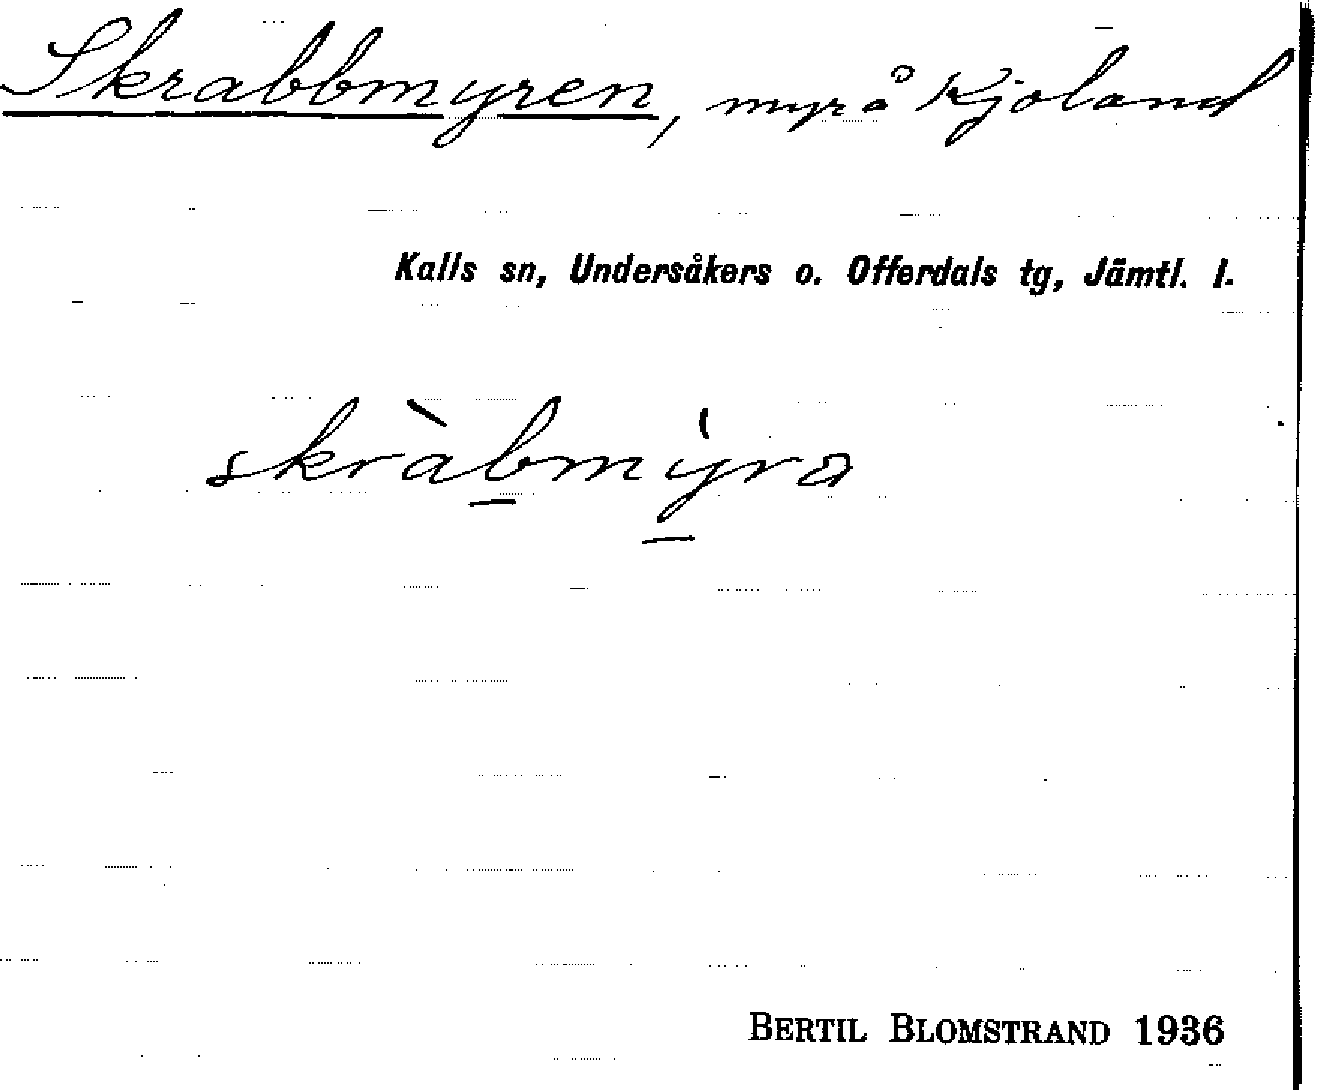 Skrabbmyren, myr å Kjoland
Kalls sn, Undersåkers o. Offerdals tg, Jämtl. l.
skràb̲my̲̍ra
BERTIL BLOMSTRAND 1936